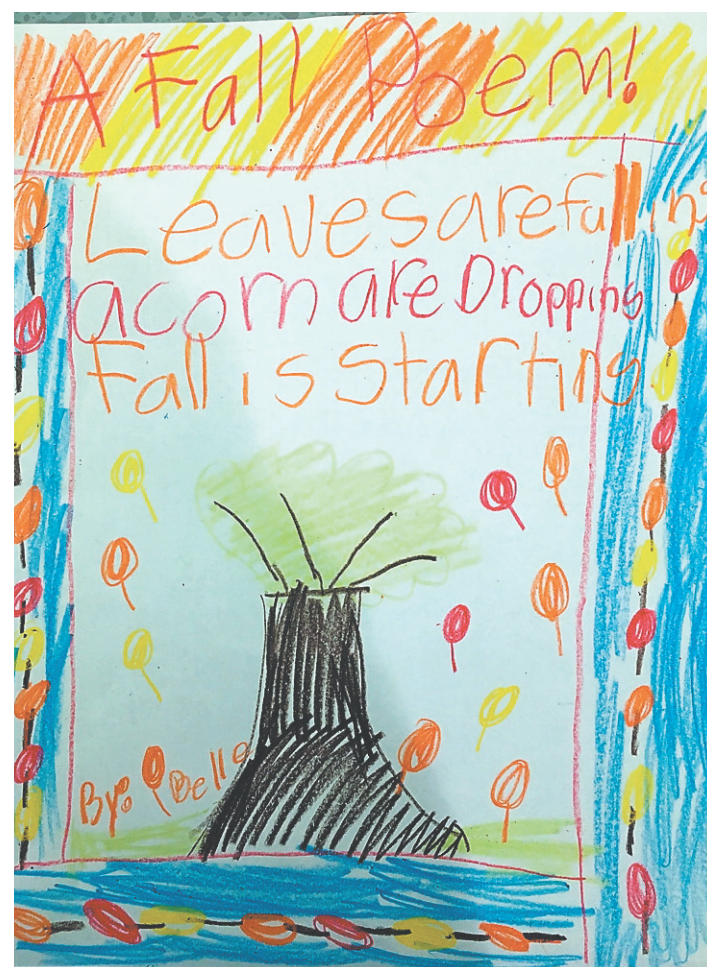 A Fall Poem!
Leaves are falling
acorn are Dropping
Fall is Starting
By: Belle